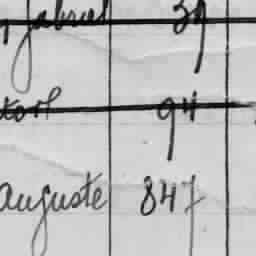 Gabriel 39
94
Auguste 847